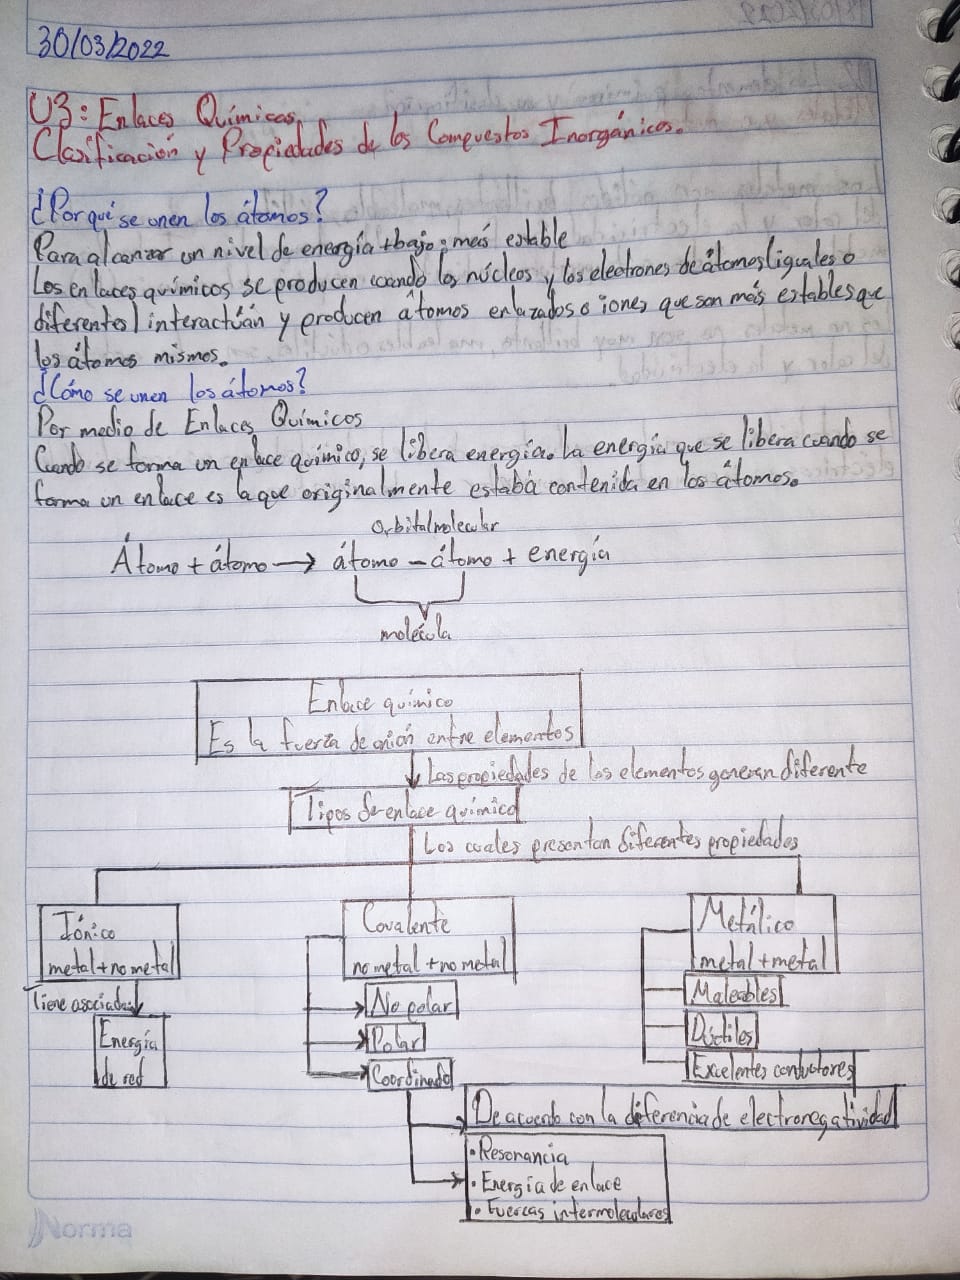 30/03/2022
U3: Enlaces Químicos.
Clasificación y Propiedades de los Compuestos Inorgánicos.
¿Por qué se unen los átomos?
Para alcanzar un nivel de energía +bajo; más estable
Los enlaces químicos se producen cuando los núcleos y los electrones de átomos (iguales o
diferentes) interactúan y producen átomos enlazados o iones que son más estables que
los átomos mismos.
¿Cómo se unen los átomos?
Por medio de Enlaces Químicos
Cuando se forma un enlace químico, se libera energía. La energía que se libera cuando se
forma un enlace es la que originalmente estaba contenida en los átomos.
Orbital molecular
Átomo + átomo → átomo - átomo + energía
molécula
Enlace químico
Es la fuerza de unión entre elementos
Las propiedades de los elementos generan diferente
Tipos de enlace químico
Los cuales presentan diferentes propiedades
Iónico
metal + no metal
Tiene asociada
Energía
de red
Covalente
no metal + no metal
No polar
Polar
Coordinado
Metálico
metal + metal
Maleables
Dúctiles
Excelentes conductores
De acuerdo con la diferencia de electronegatividad
• Resonancia
• Energía de enlace
• Fuercas intermoleculares
Norma